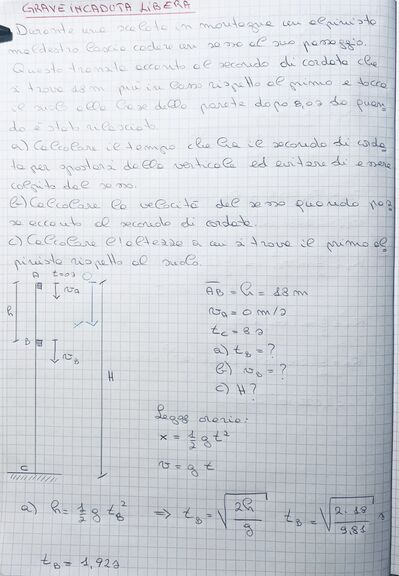 GRAVE IN CADUTA LIBERA
Durante una scalata in montagna un alpinista
maldestro lascia cadere un sasso al suo passaggio.
Questo transita accanto al secondo di cordata che
si trova 18 m più in basso rispetto al primo e tocca
il suolo alla base della parete dopo 8,0 s da quan
do è stato rilasciato.
a) Calcolare il tempo che ha il secondo di corda
ta per spostarsi dalla verticale ed evitare di essere
colpito dal sasso.
b) Calcolare la velocità del sasso quando pas
sa accanto al secondo di cordata.
c) Calcolare l'altezza a cui si trova il primo al
pinista rispetto al suolo.
A t=0s O
v_A
h
B
v_B
H
C
AB = h = 18 m
v_A = 0 m/s
t_C = 8 s
a) t_B = ?
b) v_B = ?
c) H?
Legge oraria:
x = 1/2 g t²
v = g t
a) h = 1/2 g t_B² ⇒ t_B = √(2h/g) t_B = √(2·18/9,81) s
t_B = 1,92 s